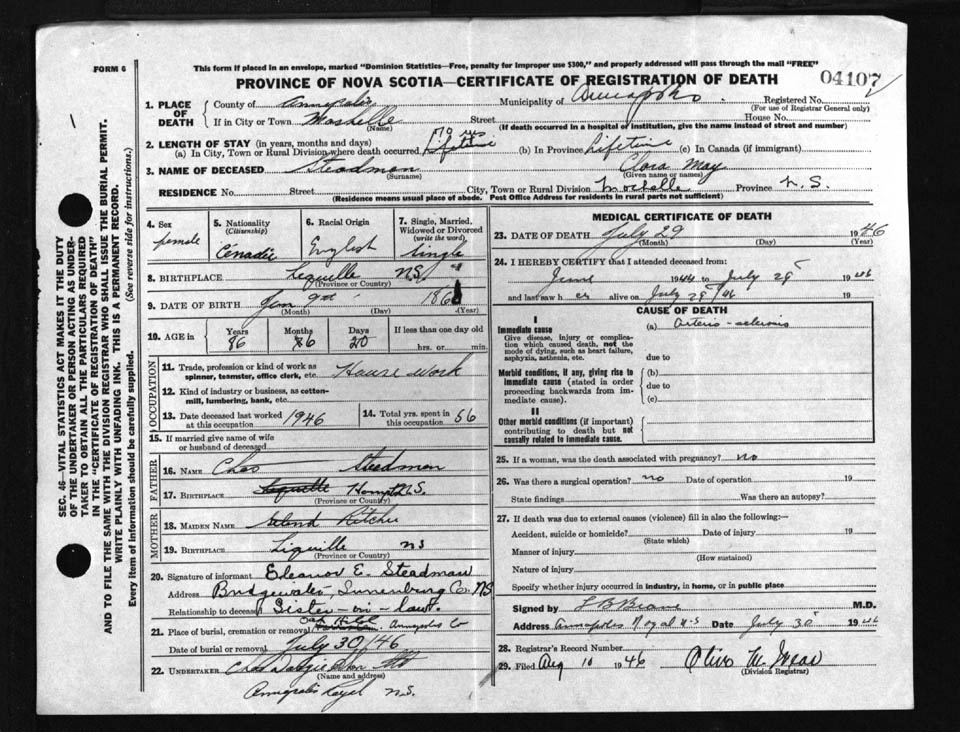 This form if placed in an envelope, marked "Dominion Statistics—Free, penalty for improper use $300," and properly addressed will pass through the mail "FREE"
FORM 6
PROVINCE OF NOVA SCOTIA—CERTIFICATE OF REGISTRATION OF DEATH
04107
SEC. 46—VITAL STATISTICS ACT MAKES IT THE DUTY
OF THE UNDERTAKER OR PERSON ACTING AS UNDER-
TAKER TO OBTAIN ALL THE PARTICULARS REQUIRED
IN THE "CERTIFICATE OF REGISTRATION OF DEATH"
AND TO FILE THE SAME WITH THE DIVISION REGISTRAR WHO SHALL ISSUE THE BURIAL PERMIT.
WRITE PLAINLY WITH UNFADING INK. THIS IS A PERMANENT RECORD.
Every item of information should be carefully supplied. (See reverse side for instructions.)
1. PLACE OF DEATH
County of Annapolis Municipality of Annapolis Registered No.
(For use of Registrar General only)
If in City or Town Moshelle Street House No.
(Name) (If death occurred in a hospital or institution, give the name instead of street and number)
2. LENGTH OF STAY (in years, months and days) 70 yrs
(a) In City, Town or Rural Division where death occurred Lifetime (b) In Province Lifetime (c) In Canada (if immigrant)
3. NAME OF DECEASED Steadman Clora May
(Surname) (Given name or names)
RESIDENCE No. Street City, Town or Rural Division Moshelle Province N.S.
(Residence means usual place of abode. Post Office Address for residents in rural parts not sufficient)
4. Sex female
5. Nationality (Citizenship) Canadi
6. Racial Origin English
7. Single, Married, Widowed or Divorced (write the word) Single
8. BIRTHPLACE Lequille N.S.
(Province or Country)
9. DATE OF BIRTH Jan 9th 186
(Month) (Day) (Year)
10. AGE in Years 86 Months 6 Days 20 If less than one day old
hrs. or min.
OCCUPATION
11. Trade, profession or kind of work as spinner, teamster, office clerk, etc. House work
12. Kind of industry or business, as cotton-mill, lumbering, bank, etc.
13. Date deceased last worked at this occupation 1946
14. Total yrs. spent in this occupation 56
15. If married give name of wife or husband of deceased
FATHER
16. NAME Chas Steadman
17. BIRTHPLACE Lequille N.S.
(Province or Country)
MOTHER
18. MAIDEN NAME Ritchie
19. BIRTHPLACE Liquille NS
(Province or Country)
20. Signature of informant Eleanor E. Steadman
Address Bridgewater, Lunenburg Co. NS
Relationship to deceased Sister-in-law.
21. Place of burial, cremation or removal Annapolis Co
Date of burial or removal July 30/46
22. UNDERTAKER
(Name and address)
Annapolis Royal N.S.
MEDICAL CERTIFICATE OF DEATH
23. DATE OF DEATH July 29 1946
(Month) (Day) (Year)
24. I HEREBY CERTIFY that I attended deceased from:
June 1944 to July 28 1946
and last saw her alive on July 28 '46 19
CAUSE OF DEATH
I
Immediate cause
Give disease, injury or complication which caused death, not the mode of dying, such as heart failure, asphyxia, asthenia, etc.
(a) Arterio-sclerosis
due to
Morbid conditions, if any, giving rise to immediate cause (stated in order proceeding backwards from immediate cause).
(b)
due to
(c)
II
Other morbid conditions (if important) contributing to death but not causally related to immediate cause.
25. If a woman, was the death associated with pregnancy? no
26. Was there a surgical operation? no Date of operation 19
State findings Was there an autopsy?
27. If death was due to external causes (violence) fill in also the following:—
Accident, suicide or homicide? Date of injury 19
(State which)
Manner of injury
(How sustained)
Nature of injury
Specify whether injury occurred in industry, in home, or in public place
Signed by M.D.
Address Annapolis Royal N-S Date July 30 1946
28. Registrar's Record Number
29. Filed Aug 10 1946
(Division Registrar)